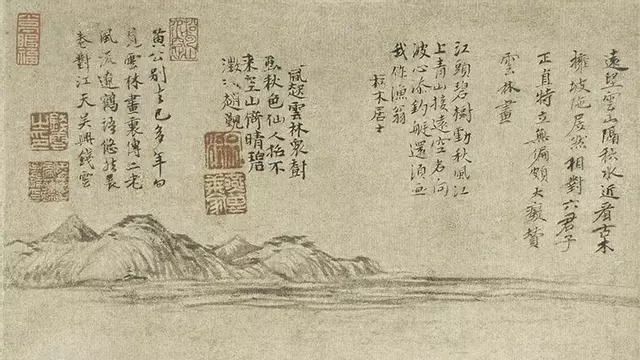 遠望雲山隔秋水近看古木
擁坡陁居然相對六君子
正直特立無偏頗大癡贊
雲林畫
江頭碧樹動秋風江
上青山接遠空若向
波心添釣艇還須畫
我作漁翁
木居士
風起雲林眾樹
焦秋色仙人招不
來空山倚晴碧
澂江趙覲
黃公別去已多年忽
見雲林畫裏傳二老
風流遼鶴語悠然展
卷對江天吳興錢雲